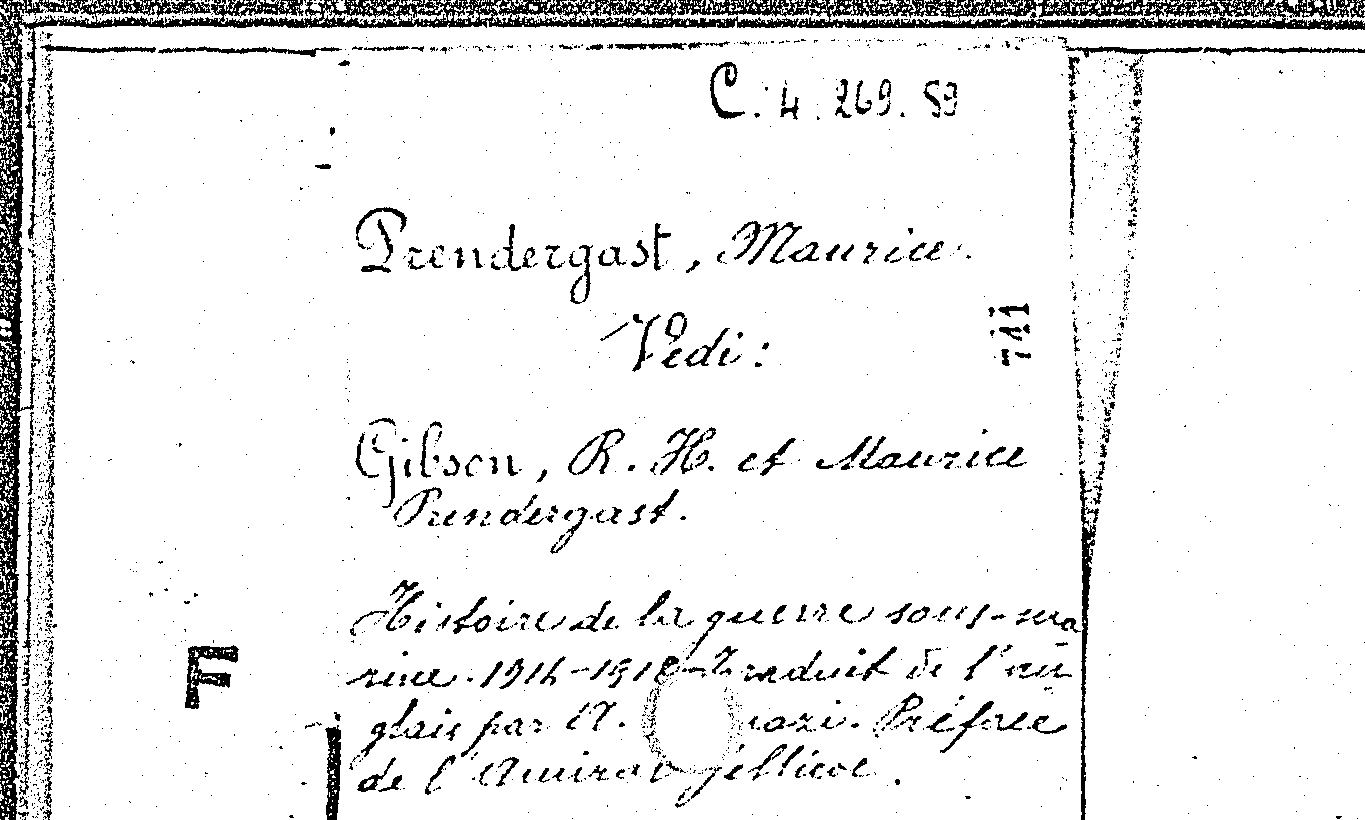 C. 4. 269. 59
Prendergast, Maurice.
Vedi:
741
Gibson, R. H. et Maurice
Prendergast.
Histoire de la guerre sous-ma
rine. 1914-1918 Traduit de l'an
F
glais par A. Préface
de l'Amiral Jellicoe.